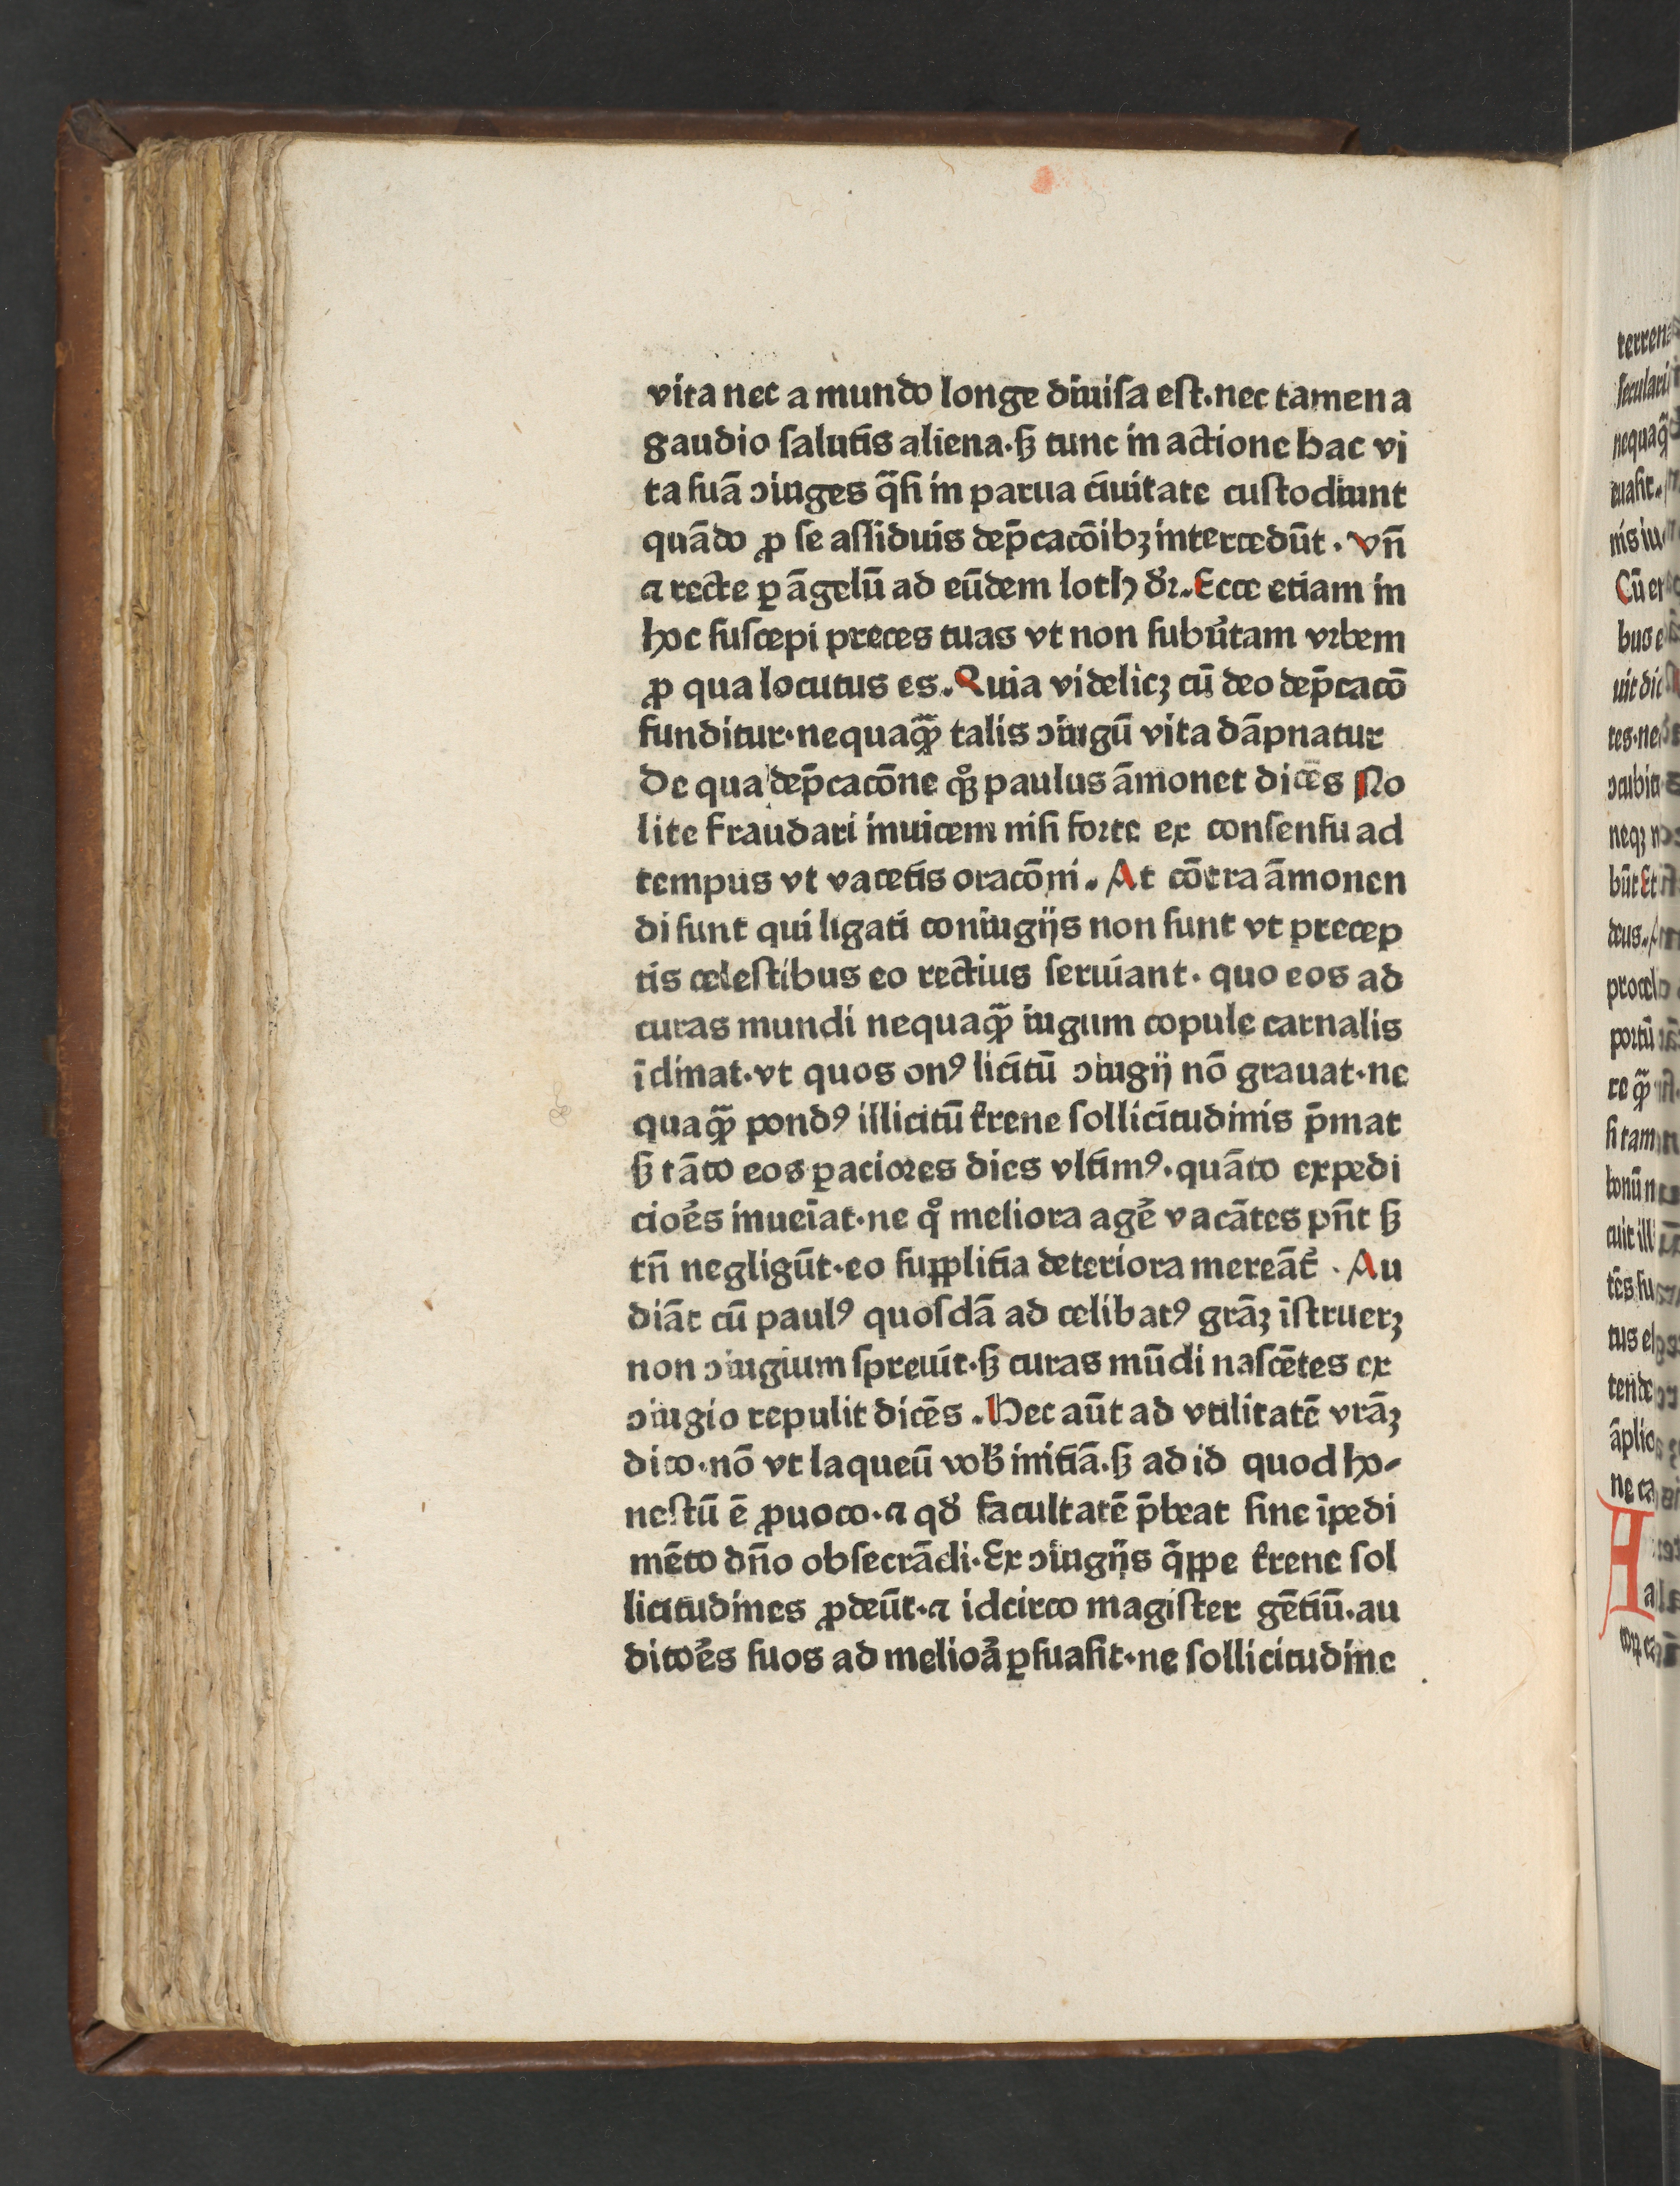 vita nec a mundo longe diuiſa eſt·nec tamen a
gaudio ſalutis aliena·ꝭ tunc in actione hac vi
ta ſuā ɔiuges q̄ſi in parua ciuitate cuſtodiunt
quādo ꝓ ſe aſſiduis dep̄cacōibꝫ intercedūt · vn̄
⁊ recte ꝑ āgelū ad eūdem loth dr̄. Ecce etiam in
hoc ſuſcepi preces tuas vt non ſubu̓tam vrbem
ꝓ qua locutus es. Quia videlicꝫ cū deo dep̄cacō
funditur·nequaqͣꝫ talis ɔiugū vita dāpnatur
De qua dep̄cacōne qͦqꝫ paulus āmonet dicēs No
lite fraudari inuicem niſi forte ex conſenſu ad
tempus vt vacetis oracōni. At cōtra āmonen
di ſunt qui ligati coniugijs non ſunt vt precep
tis celeſtibus eo rectius ſeruiant · quo eos ad
curas mundi nequaqͣꝫ iugum copule carnalis
īclinat·vt quos onꝰ licitū ɔiugij nō grauat·ne
quaqͣꝫ pondꝰ illicitū t̓rene ſollicitudinis p̄mat
ꝭ tāto eos ꝑaciores dies vltimꝰ·quāto expedi
cioe̓s inueīat·ne qͦ meliora age̓ vacātes pn̄t ꝭ
tn̄ negligūt·eo ſupplitia deteriora mereāt̓ · Au
diāt cū paulꝰ quoſdā ad celibatꝰ grāꝫ īſtruerꝫ
non ɔiugium ſpreuit·ꝭ curas mūdi naſcētes ex
ɔiugio repulit dicēs . Hec aūt ad vtilitatē vrāꝫ
dico·nō vt laqueū vob̓ initiā·ꝭ ad id quod ho-
neſtū ē ꝓuoco·⁊ qd̓ facultatē p̄beat ſine īpedi
mēto dn̄o obſecrādi·Ex ɔiugijs q̄ppe t̓rene ſol
licitudines ꝓdeūt·⁊ idcirco magiſter gētiū·au
ditoe̓s ſuos ad melioa̓ ꝑſuaſit·ne ſollicitudine